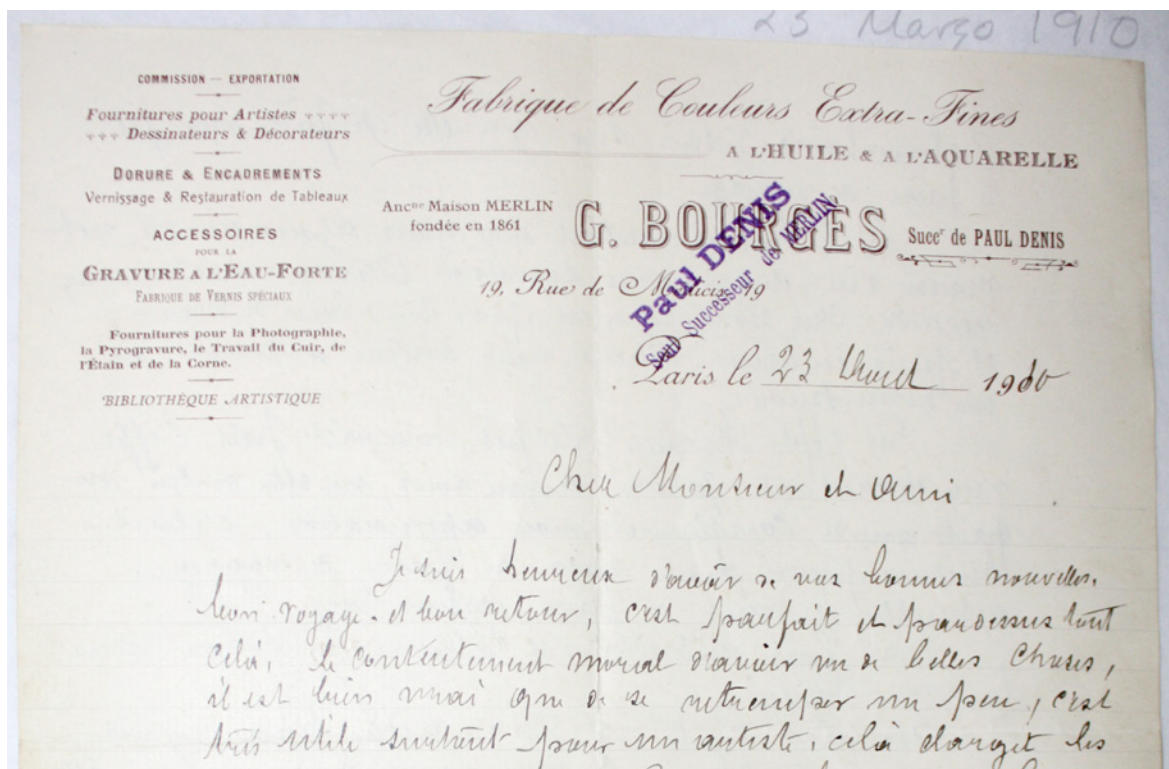 23 Março 1910
COMMISSION — EXPORTATION
Fournitures pour Artistes
Dessinateurs & Décorateurs
DORURE & ENCADREMENTS
Vernissage & Restauration de Tableaux
ACCESSOIRES
POUR LA
GRAVURE A L'EAU-FORTE
FABRIQUE DE VERNIS SPÉCIAUX
Fournitures pour la Photographie,
la Pyrogravure, le Travail du Cuir, de
l'Étain et de la Corne.
BIBLIOTHÈQUE ARTISTIQUE
Fabrique de Couleurs Extra-Fines
A L'HUILE & A L'AQUARELLE
Ancne Maison MERLIN
fondée en 1861
G. BOURGES
Succr de PAUL DENIS
19, Rue de Médicis, 19
Paul DENIS
Seul Successeur de MERLIN
Paris le 23 1910
Cher Monsieur et Ami
Je suis heureux d'avoir de vos bonnes nouvelles.
bon voyage. et bon retour, c'est parfait et pardessus tout
celà, le contentement moral d'avoir vu de belles choses,
il est bien vrai que de se retremper un peu, c'est
très utile surtout pour un artiste, celà les